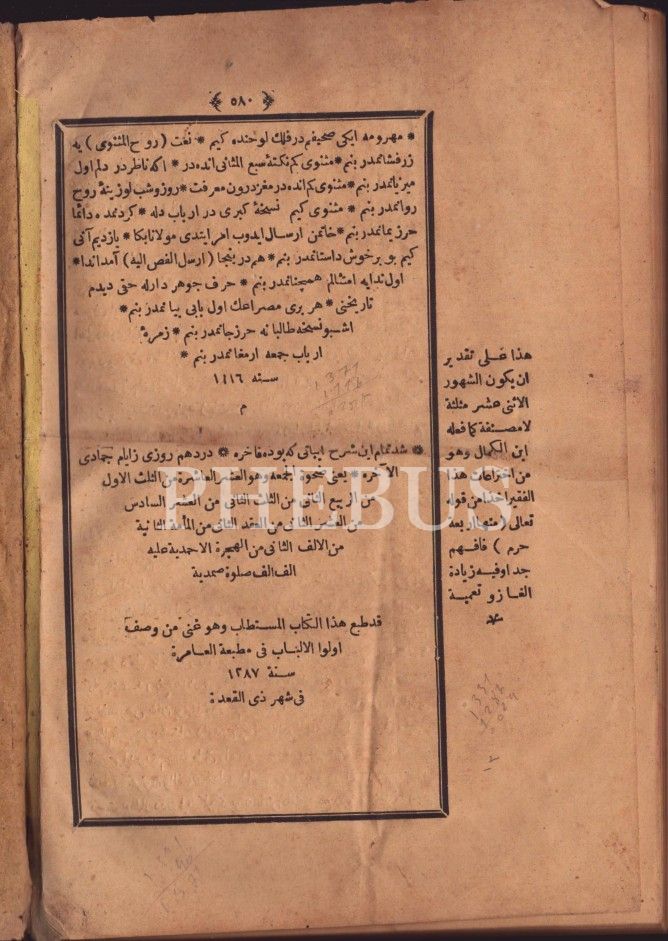 ٥٨٠
* مهرومه ایکی صحیفم در فلك لوحنده کیم * نغت (روح المثنوی) یه
زرفشانمدر بنم * مثنوی کم نکتهٔ سبع المثانی انده در * اکه ناظر در دلم اول
میزبانمدر بنم * مثنوی کم انده در مغز درون معرفت * روز وشب لوزینهٔ روح
روانمدر بنم * مثنوی کیم نسخهٔ کبری در ارباب دله * کردنمده دائما
حرز یمانمدر بنم * خاتمن ارسال ایدوب امر ایتدی مولانا بکا * یازدیم آنی
کیم بو برخوش داستانمدر بنم * هم در بنجا (ارسل الفص الیه) آمد اندا *
اول ندایه امتثالم همچنانمدر بنم * حرف جوهر دارله حتی دیدم
تاریخنی * هر بری مصراعك اول بابی بیانمدر بنم *
اشبو نسخه طالبانه حرز جانمدر بنم * زمرهٔ
ارباب جمعه ارمغانمدر بنم *
سنه ١١١٦
م
* شد تمام این شرح ابیاتی که بوده فاخره * در دهم روزی زایام جمادی
الآخره * یعنی ضحوة الجمعه وهو العشر العاشرة من الثلث الاول
من الربیع الثانی من الثلث الثانی من العشر السادس
من العشر الثانی من العقد الثانی من المائة الثانیة
من الالف الثانی من الهجرة الاحمدیة علیه
الف الف صلوة صمدیة
قد طبع هذا الکتاب المستطاب وهو غنی من وصف
اولوا الالباب فی مطبعة العامرة
سنة ١٢٨٧
فی شهر ذی القعدة
هذا علی تقدیر
ان یکون الشهور
الاثنی عشر مثلثة
لا مصنفة کما فعله
ابن الکمال وهو
من اختراعات هذا
الفقیر اخذا من قوله
تعالی (منها اربعة
حرم) فافهم
جدا وفیه زیادة
الغاز وتعمیة
PHEBUS